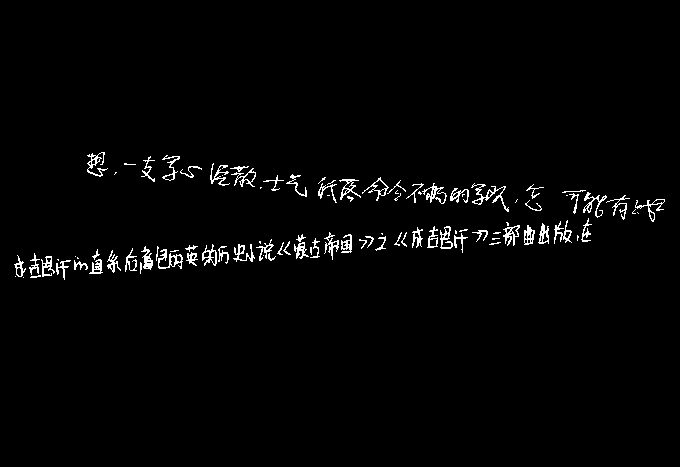 想,一支军心涣散,士气低落,命令不畅的军队,怎可能有战
成吉思汗的直系后裔包丙英的历史小说《蒙古帝国》之《成吉思汗》三部曲出版,在